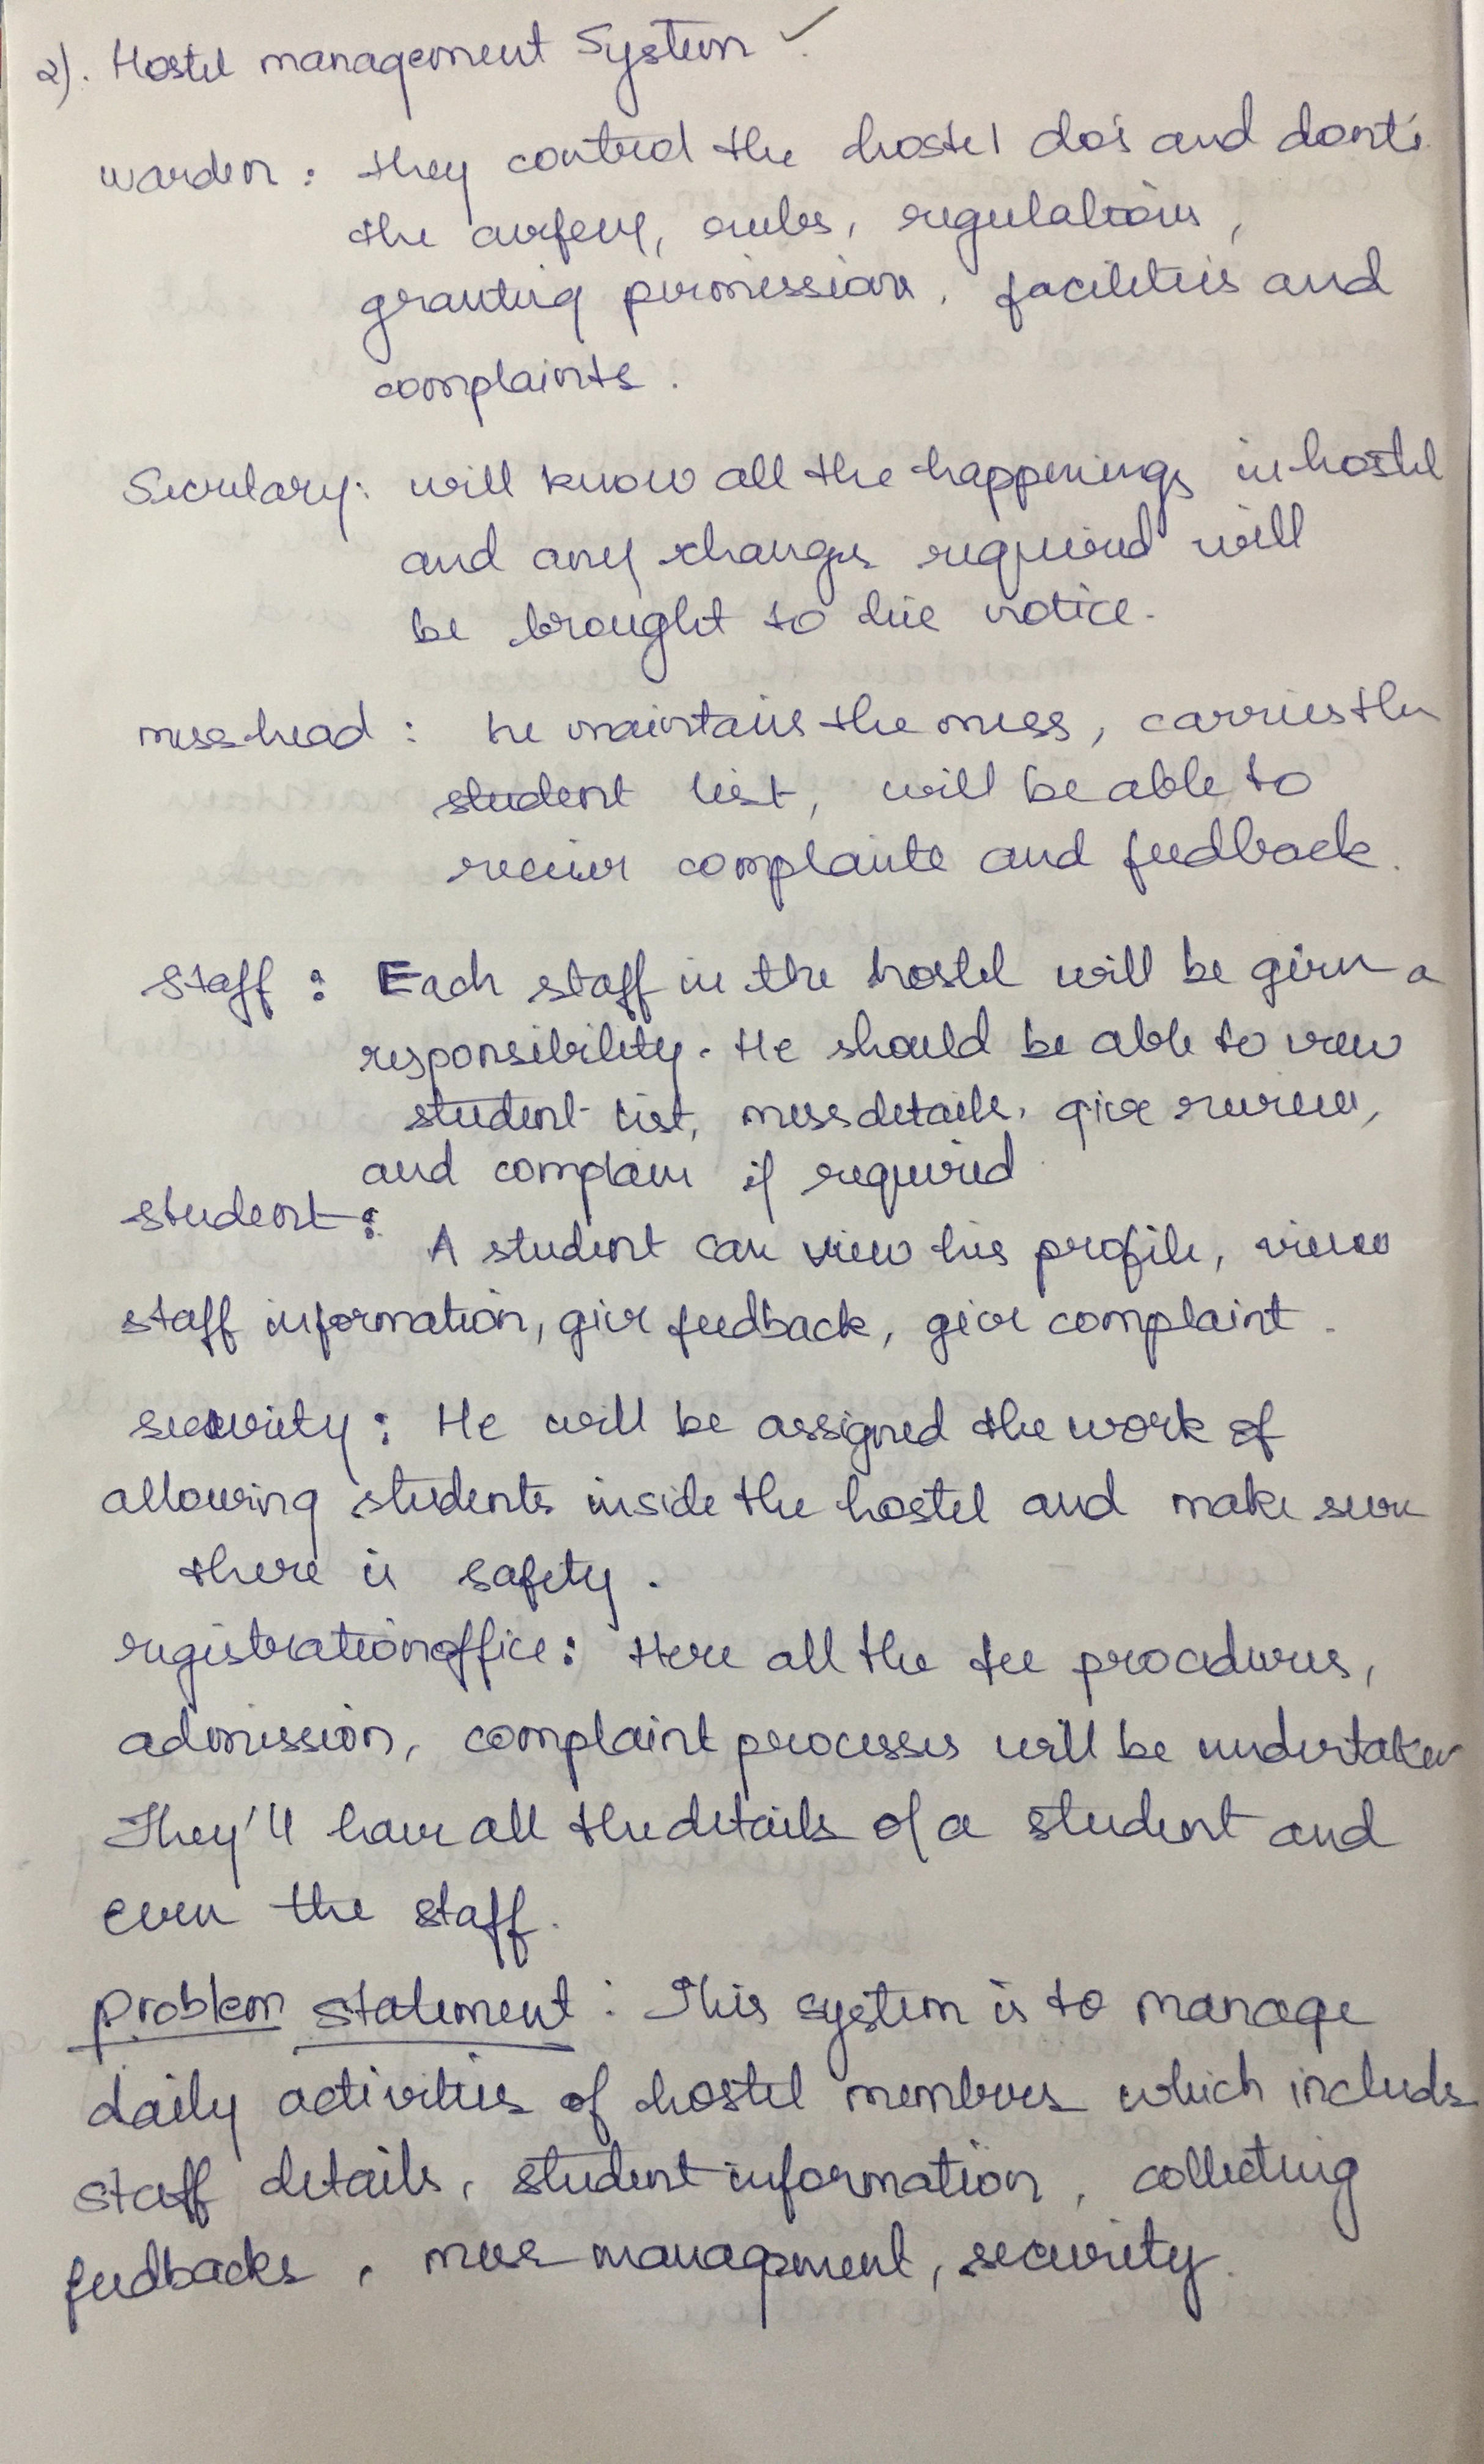 2). Hostel management System ✓
warden : they control the hostel do's and dont's
the curfew, rules, regulations,
granting permission, facilities and
complaints.
Secretary: will know all the happenings in hostel
and any changes required will
be brought to his notice.
mess head : he maintains the mess, carries the
student list, will be able to
receive complaints and feedback.
Staff : Each staff in the hostel will be given a
responsibility. He should be able to view
student list, mess details, give review,
and complain if required
student :
A student can view his profile, view
staff information, give feedback, give complaint.
security : He will be assigned the work of
allowing students inside the hostel and make sure
there is safety.
registration office : Here all the fee procedures,
admission, complaint processes will be undertaken
They'll have all the details of a student and
even the staff.
Problem statement : This system is to manage
daily activities of hostel members which includes
staff details, student information, collecting
feedbacks, mess management, security.